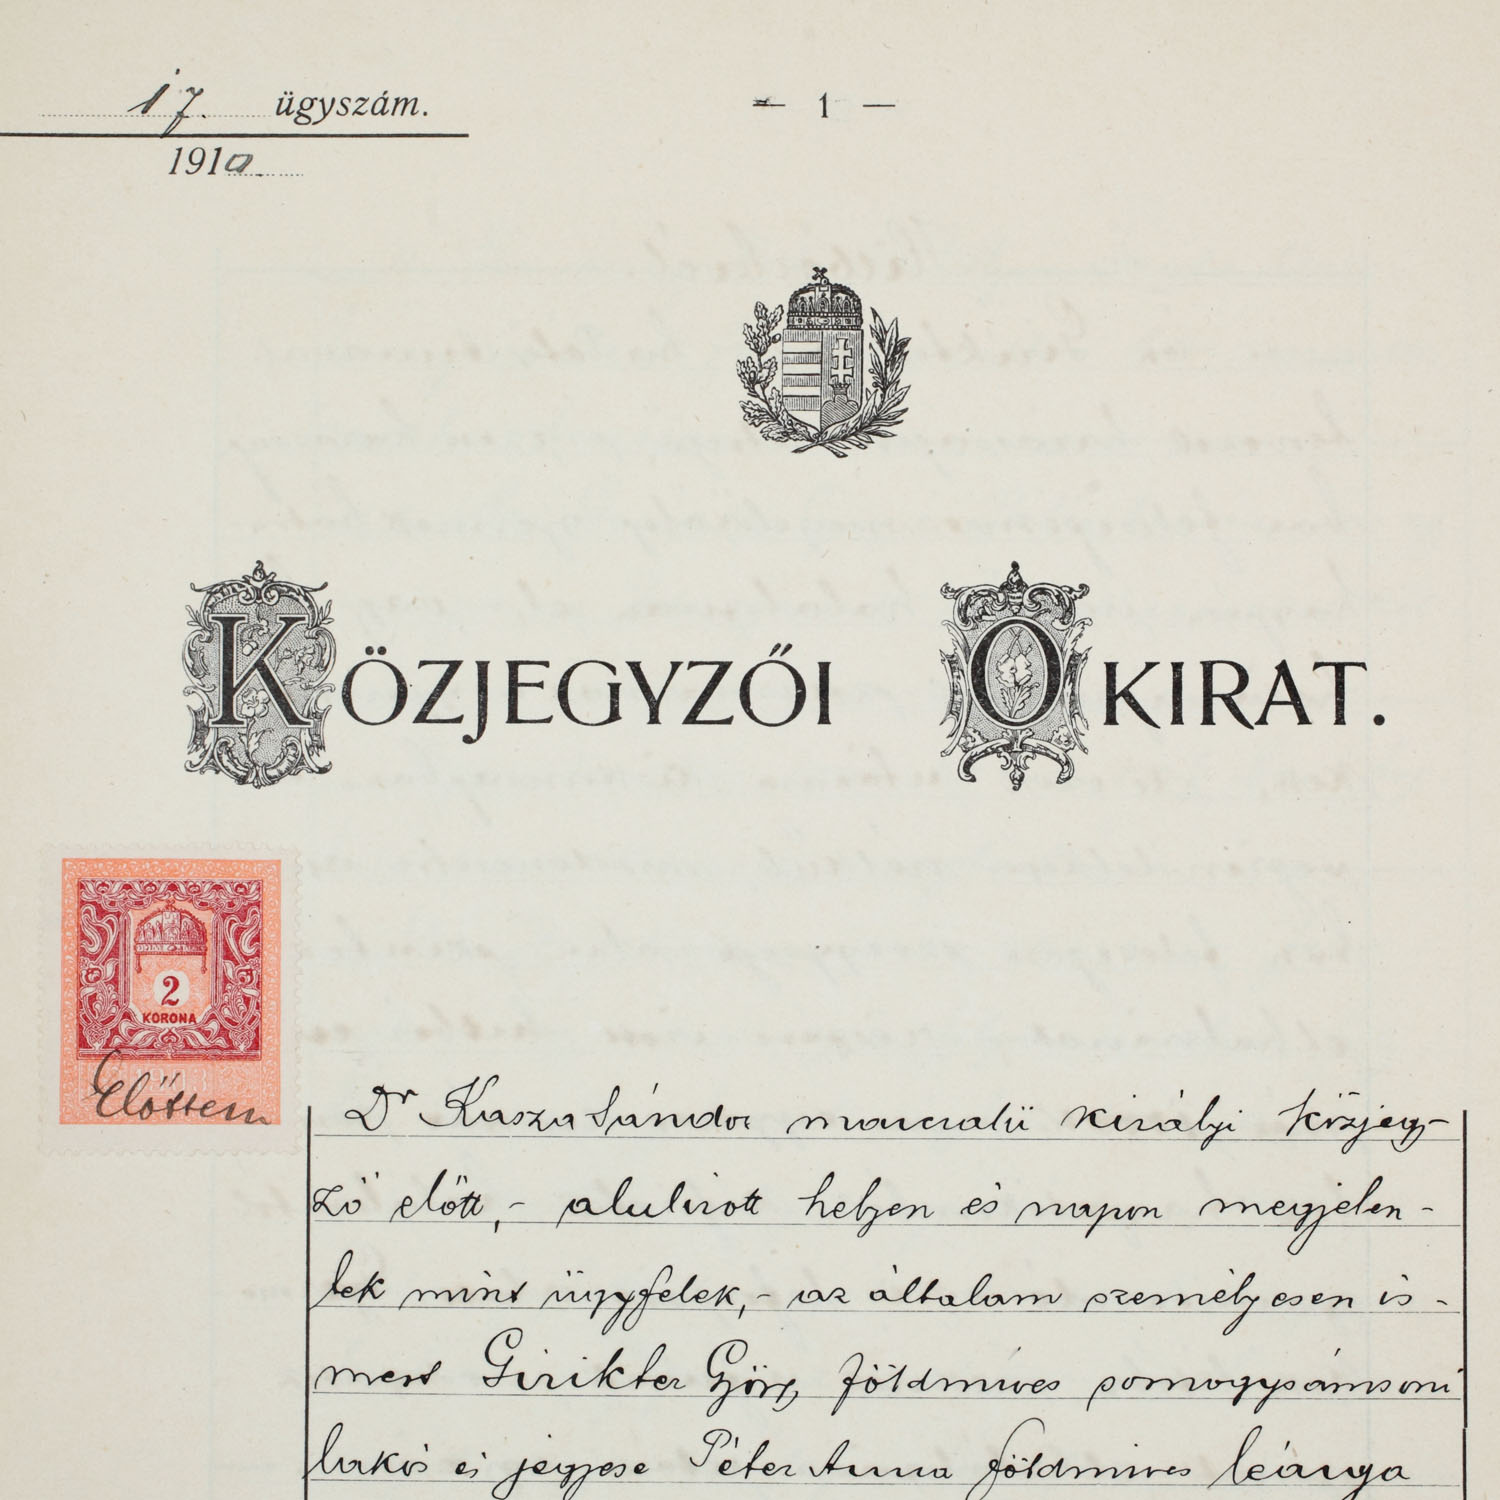 17. ügyszám.
1910.
— 1 —
KÖZJEGYZŐI OKIRAT.
2
KORONA
Előttem
Dr Kasza Sándor marcalii királyi közjegy-
ző előtt,- alulirott helyen és napon megjelen-
tek mint ügyfelek,- az általam személyesen is-
mert Girikter György földmives somogysámsoni
lakós és jegyese Péter Anna földmives leánya